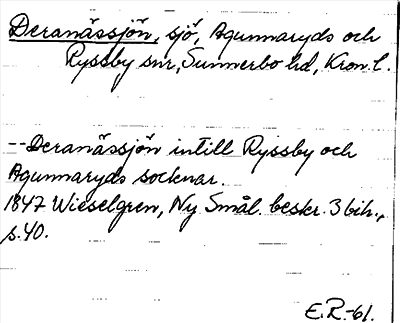 Deranässjön, sjö, Agunnaryds och
Ryssby snr, Sunnerbo hd, Kron. l.
--Deranässjön intill Ryssby och
Agunnaryds socknar.
1847 Wieselgren, Ny Smål. beskr. 3 bih.,
s. 40.
E.R.-61.